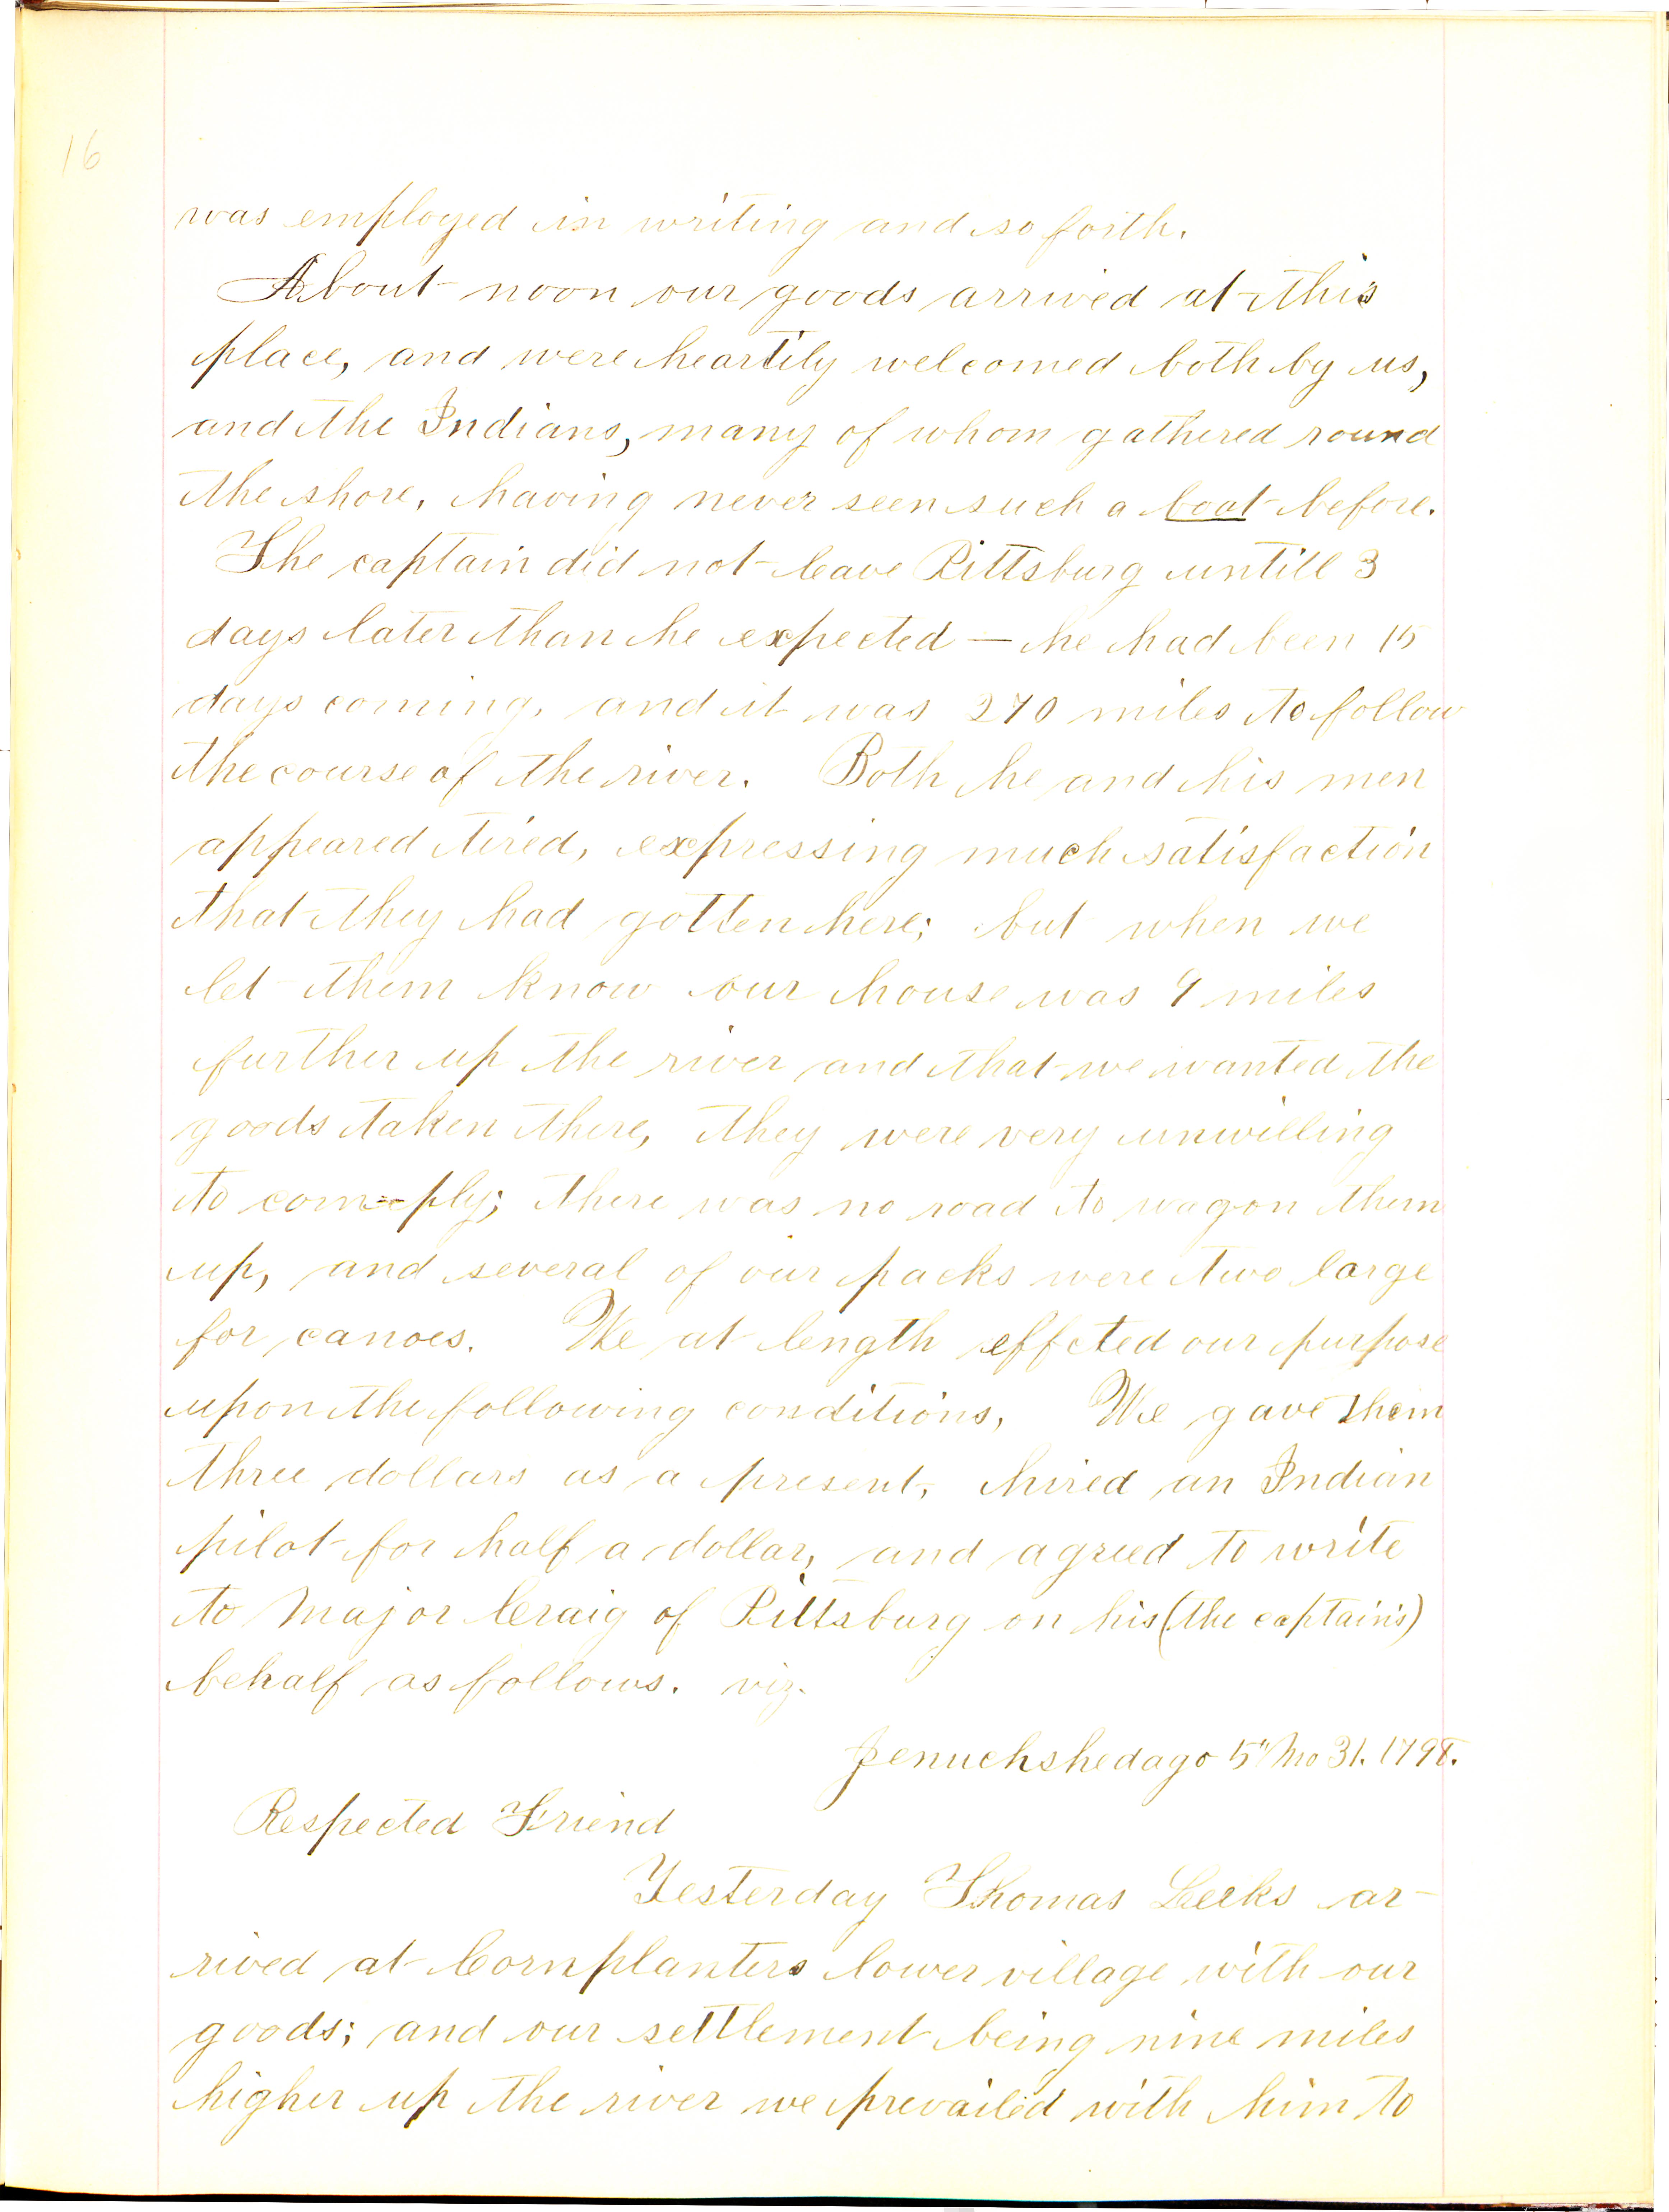 16
was employed in writing and so forth.
About noon our goods arrived at this
place, and were heartily welcomed both by us,
and the Indians, many of whom gathered round
the shore, having never seen such a boat before.
The captain did not leave Pittsburg untill 3
days later than he expected — he had been 15
days coming, and it was 270 miles to follow
the course of the river. Both he and his men
appeared tired, expressing much satisfaction
that they had gotten here; but when we
let them know our house was 9 miles
further up the river and that we wanted the
goods taken there, they were very unwilling
to com=ply; there was no road to wagon them
up, and several of our packs were two large
for canoes. We at length effcted our purpose
upon the following conditions, We gave them
three dollars as a present, hired an Indian
pilot for half a dollar, and agreed to write
to Major Craig of Pittsburg on his (the captain's)
behalf as follows. viz.
Jenuchshedago 5" Mo 31. 1798.
Respected Friend
Yesterday Thomas Leeks ar-
rived at Cornplanters lower village with our
goods; and our settlement being nine miles
higher up the river we prevailed with him to